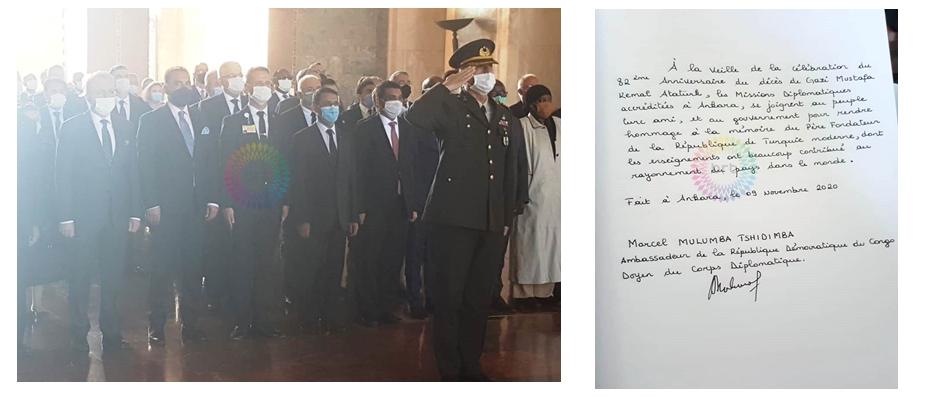 À la Veille de la célébration du
82ème Anniversaire du décès du Gazi Mustafa
Kemal Atatürk, les Missions Diplomatiques
accréditées à Ankara, se joignent au peuple
turc ami, et au gouvernement pour rendre
hommage à la mémoire du Père Fondateur
de la République de Turquie moderne, dont
les enseignements ont beaucoup contribué au
rayonnement du pays dans le monde.
Fait à Ankara, le 09 Novembre 2020
Marcel MULUMBA TSHIDIMBA
Ambassadeur de la République Démocratique du Congo
Doyen du Corps Diplomatique.